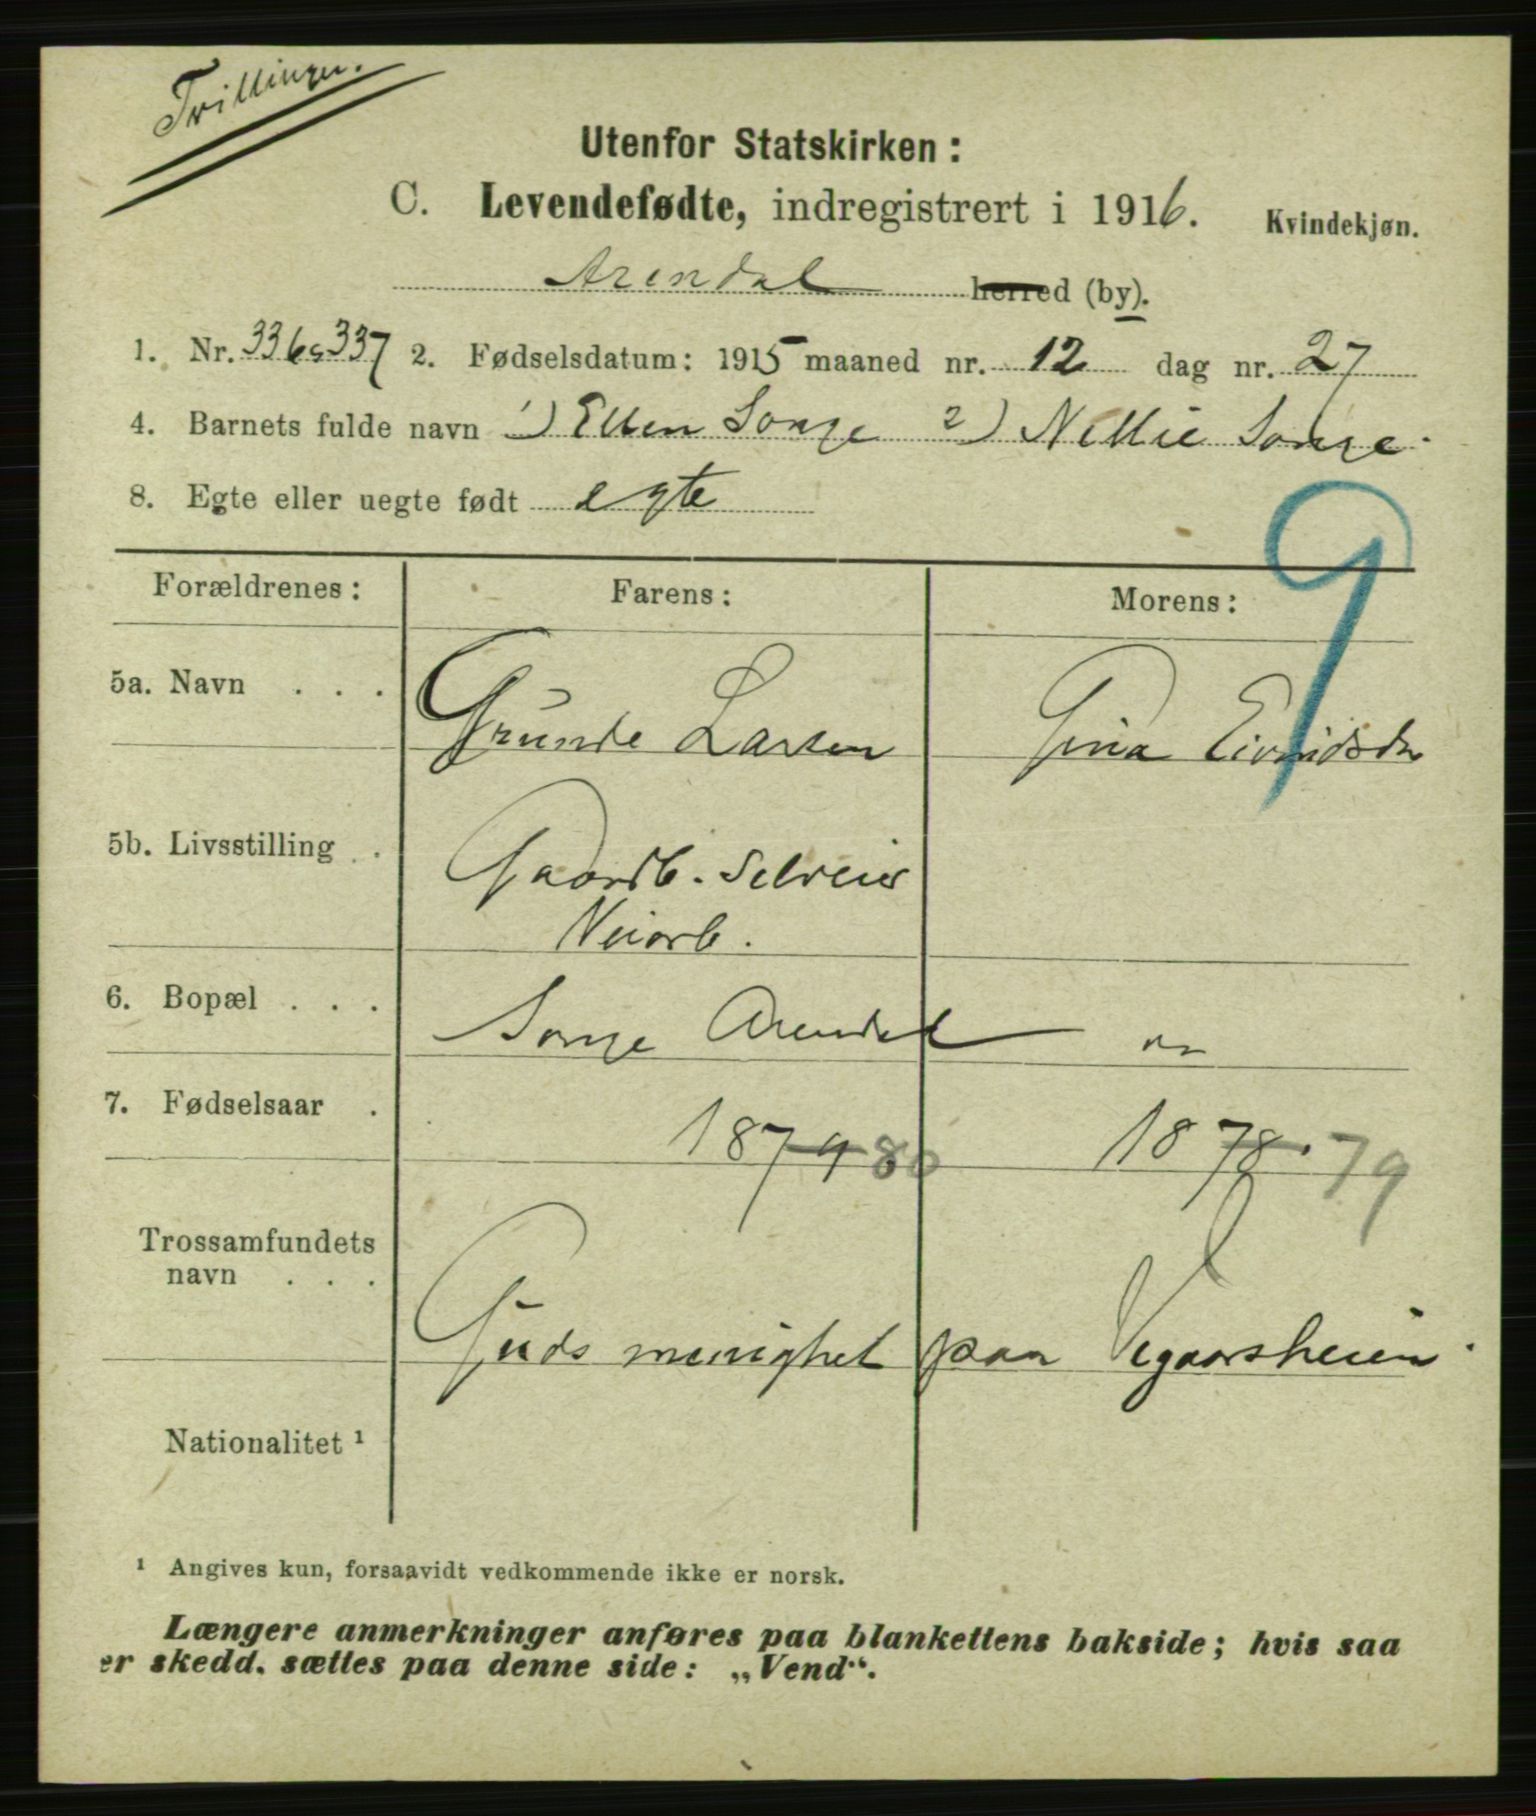 Tvillinger.
Utenfor Statskirken:
C. Levendefødte, indregistrert i 1916. Kvindekjøn.
Arendal herred (by).
1. Nr. 336 337 2. Fødselsdatum: 1915 maaned nr. 12 dag nr. 27
4. Barnets fulde navn 1) Ellen Songe 2) Nellie Songe.
8. Egte eller uegte født egte
9
Forældrenes: Farens: Morens:
5a. Navn . . . Grunde Larsen Gina Eivindsdtr
5b. Livsstilling . . Gaardb. Selveier
Veiarb.
6. Bopæl . . . Songe Arendal do
7. Fødselsaar . 1879 80 1878. 79
Trossamfundets
navn . . . Guds menighet paa Vegaarsheien.
Nationalitet ¹
¹ Angives kun, forsaavidt vedkommende ikke er norsk.
Længere anmerkninger anføres paa blankettens bakside; hvis saa
er skedd, sættes paa denne side: „Vend“.